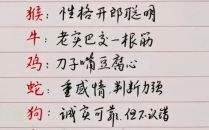 猴:性格开郎聪明
牛:老实巴交一根筋
鸡:刀子嘴豆腐心
蛇:重感情 判断力强
狗:诚实可靠.但不认错